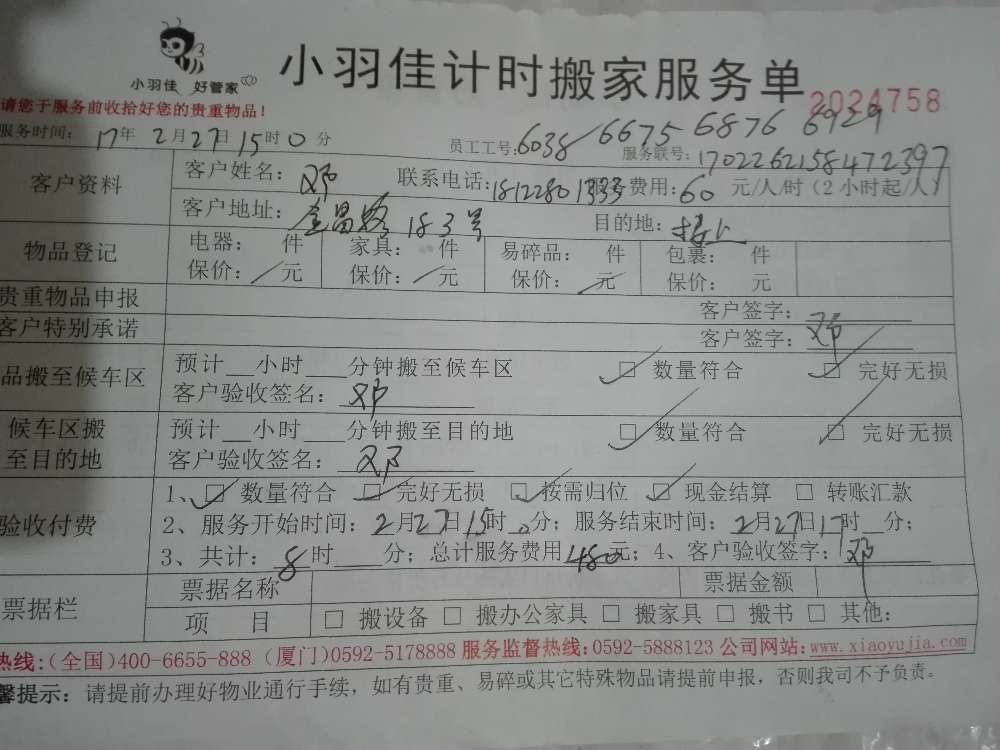 小羽佳 好管家
小羽佳计时搬家服务单
2024758
请您于服务前收拾好您的贵重物品!
服务时间: 17年 2月27日15时0分 员工工号:6038/6675 6876 6929
服务联号:1702262158472397
客户资料 客户姓名: 邓 联系电话:18122801333 服务费用:60 元/人/时(2小时起/人)
客户地址: 金昌路183号 目的地: 楼上
物品登记 电器: 件 家具: 件 易碎品: 件 包裹: 件
保价: / 元 保价: / 元 保价: / 元 保价: 元
贵重物品申报 客户签字:
客户特别承诺 客户签字: 邓
品搬至候车区 预计__小时___分钟搬至候车区 ☑ 数量符合 ☑ 完好无损
客户验收签名: 邓
候车区搬至目的地 预计__小时___分钟搬至目的地 ☑ 数量符合 ☑ 完好无损
客户验收签名: 邓
验收付费 1、☑ 数量符合 ☑ 完好无损 ☑ 按需归位 ☑ 现金结算 □ 转账汇款
2、服务开始时间: 2月27日15时0分; 服务结束时间: 2月27日17时__分;
3、共计: 8时____分; 总计服务费用480元; 4、客户验收签字: 邓
票据栏 票据名称 票据金额
项 目 □ 搬设备 □ 搬办公家具 □ 搬家具 □ 搬书 □ 其他:
热线:(全国)400-6655-888 (厦门)0592-5178888 服务监督热线:0592-5888123 公司网站:www.xiaoyujia.com
馨提示: 请提前办理好物业通行手续, 如有贵重、易碎或其它特殊物品请提前申报, 否则我司不予负责。